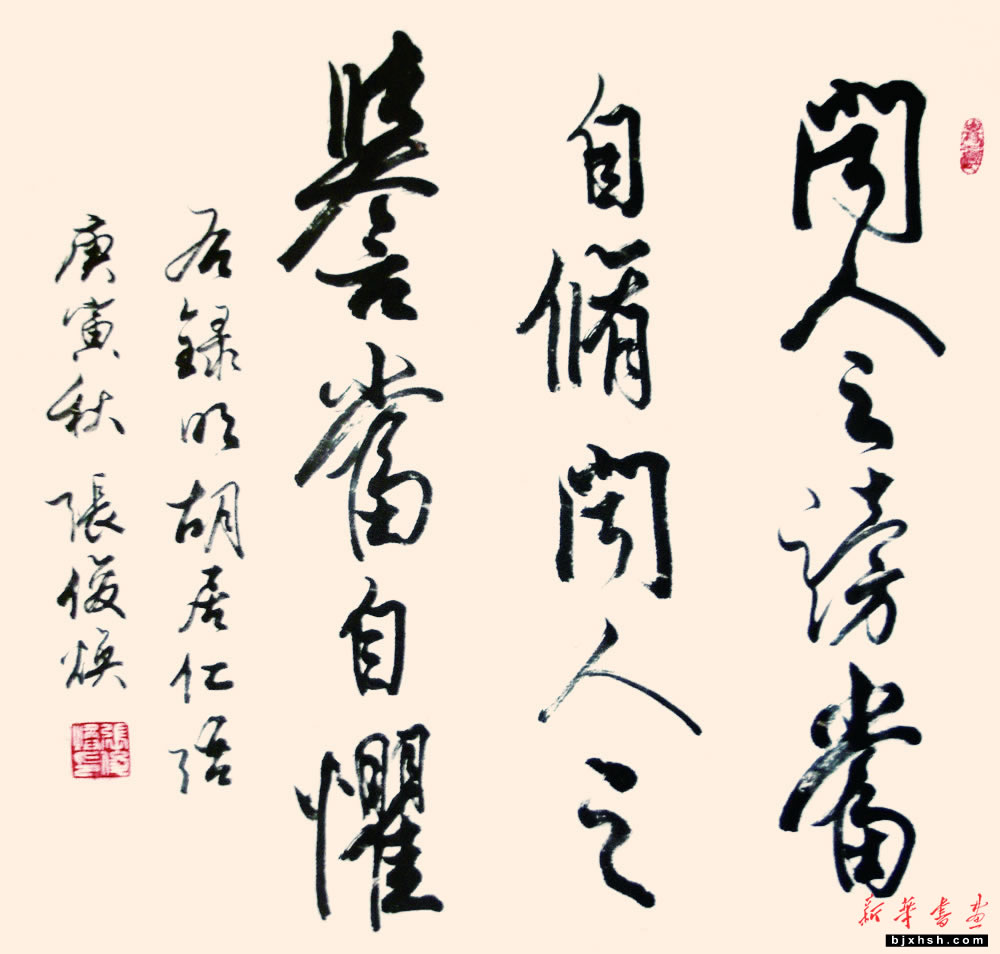 聞人之謗當
自脩聞人之
譽當自懼
右録明胡居仁語
庚寅秋 張俊煥
新華書畫
bjxhsh.com